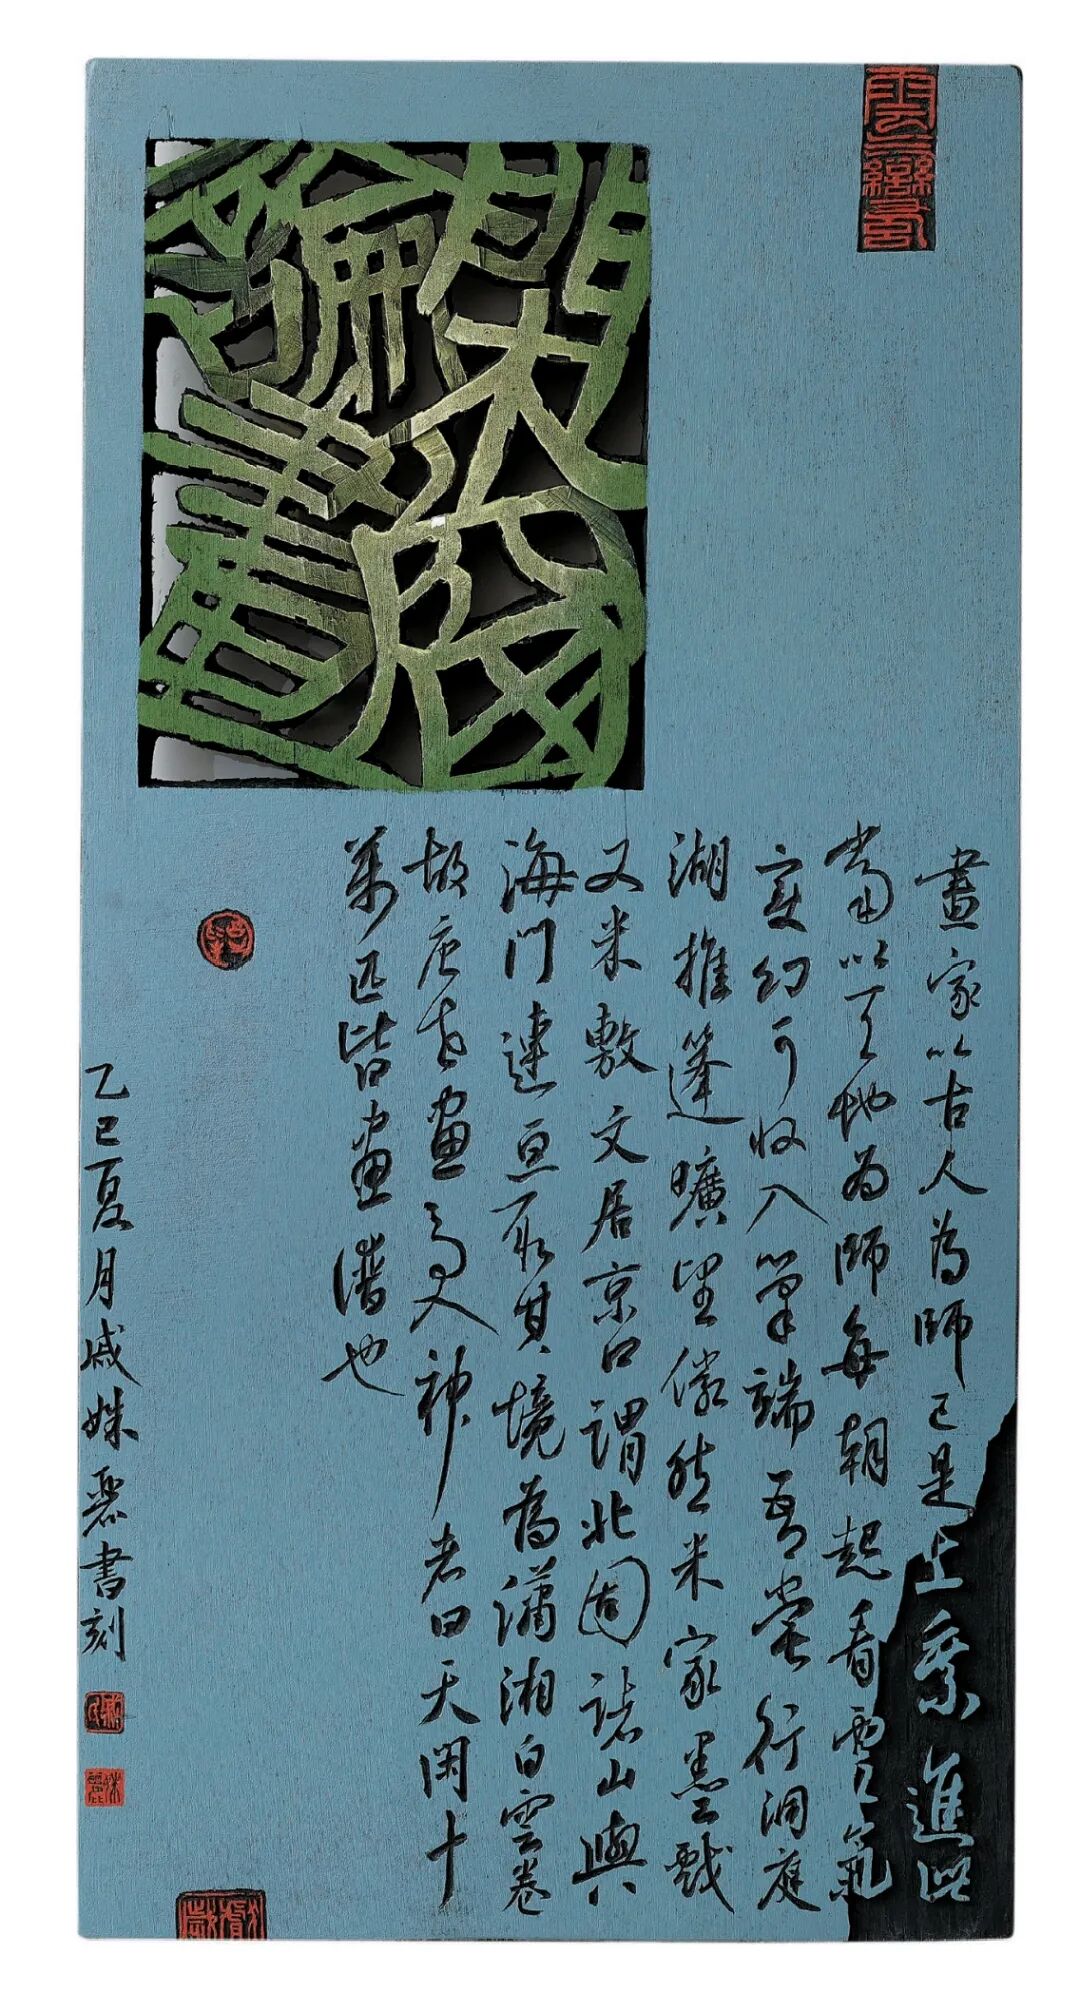 畫家以古人為師已是上乘進此
當以天地為師每朝起看雲氣
變幻可收入筆端吾嘗行洞庭
湖推篷曠望儼然米家墨戲
又米敷文居京口謂北固諸山與
海門連亘取其境為瀟湘白雲卷
故唐世畫馬入神者曰天閑十
萬匹皆畫譜也
乙巳夏月戚姝麗書刻